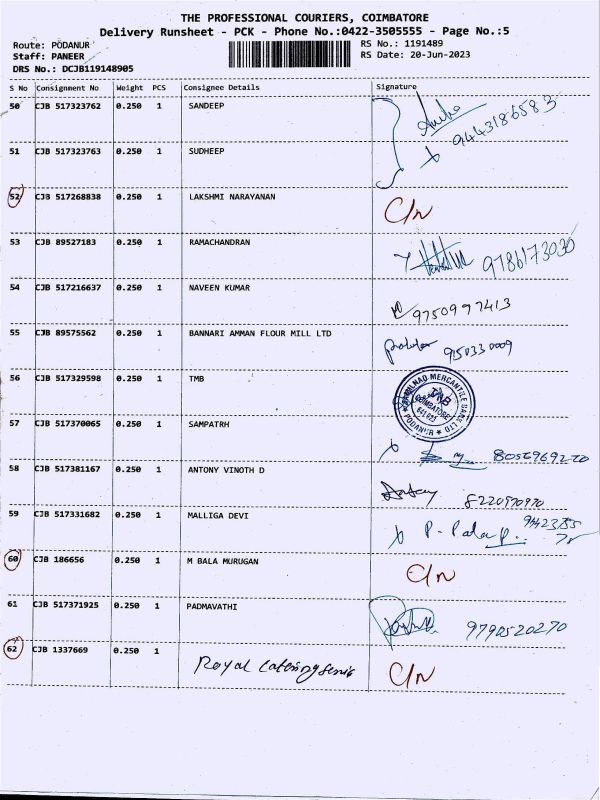 THE PROFESSIONAL COURIERS, COIMBATORE
Delivery Runsheet - PCK - Phone No.:0422-3505555 - Page No.:5
Route: PODANUR RS No.: 1191489
Staff: PANEER RS Date: 20-Jun-2023
DRS No.: DCJB119148905
S No Consignment No Weight PCS Consignee Details Signature
50 CJB 517323762 0.250 1 SANDEEP
9443186583
51 CJB 517323763 0.250 1 SUDHEEP
52 CJB 517268838 0.250 1 LAKSHMI NARAYANAN C/N
53 CJB 89527183 0.250 1 RAMACHANDRAN 9786173030
54 CJB 517216637 0.250 1 NAVEEN KUMAR 9750997413
55 CJB 89575562 0.250 1 BANNARI AMMAN FLOUR MILL LTD
56 CJB 517329598 0.250 1 TMB
TAMILNAD MERCANTILE BANK LTD
TMB
COIMBATORE
641 023
PODANUR
57 CJB 517370065 0.250 1 SAMPATRH
8056969270
58 CJB 517381167 0.250 1 ANTONY VINOTH D
Antony 8220970970
59 CJB 517331682 0.250 1 MALLIGA DEVI
60 CJB 186656 0.250 1 M BALA MURUGAN C/N
61 CJB 517371925 0.250 1 PADMAVATHI 9790520270
62 CJB 1337669 0.250 1 Royal Catering Service C/N